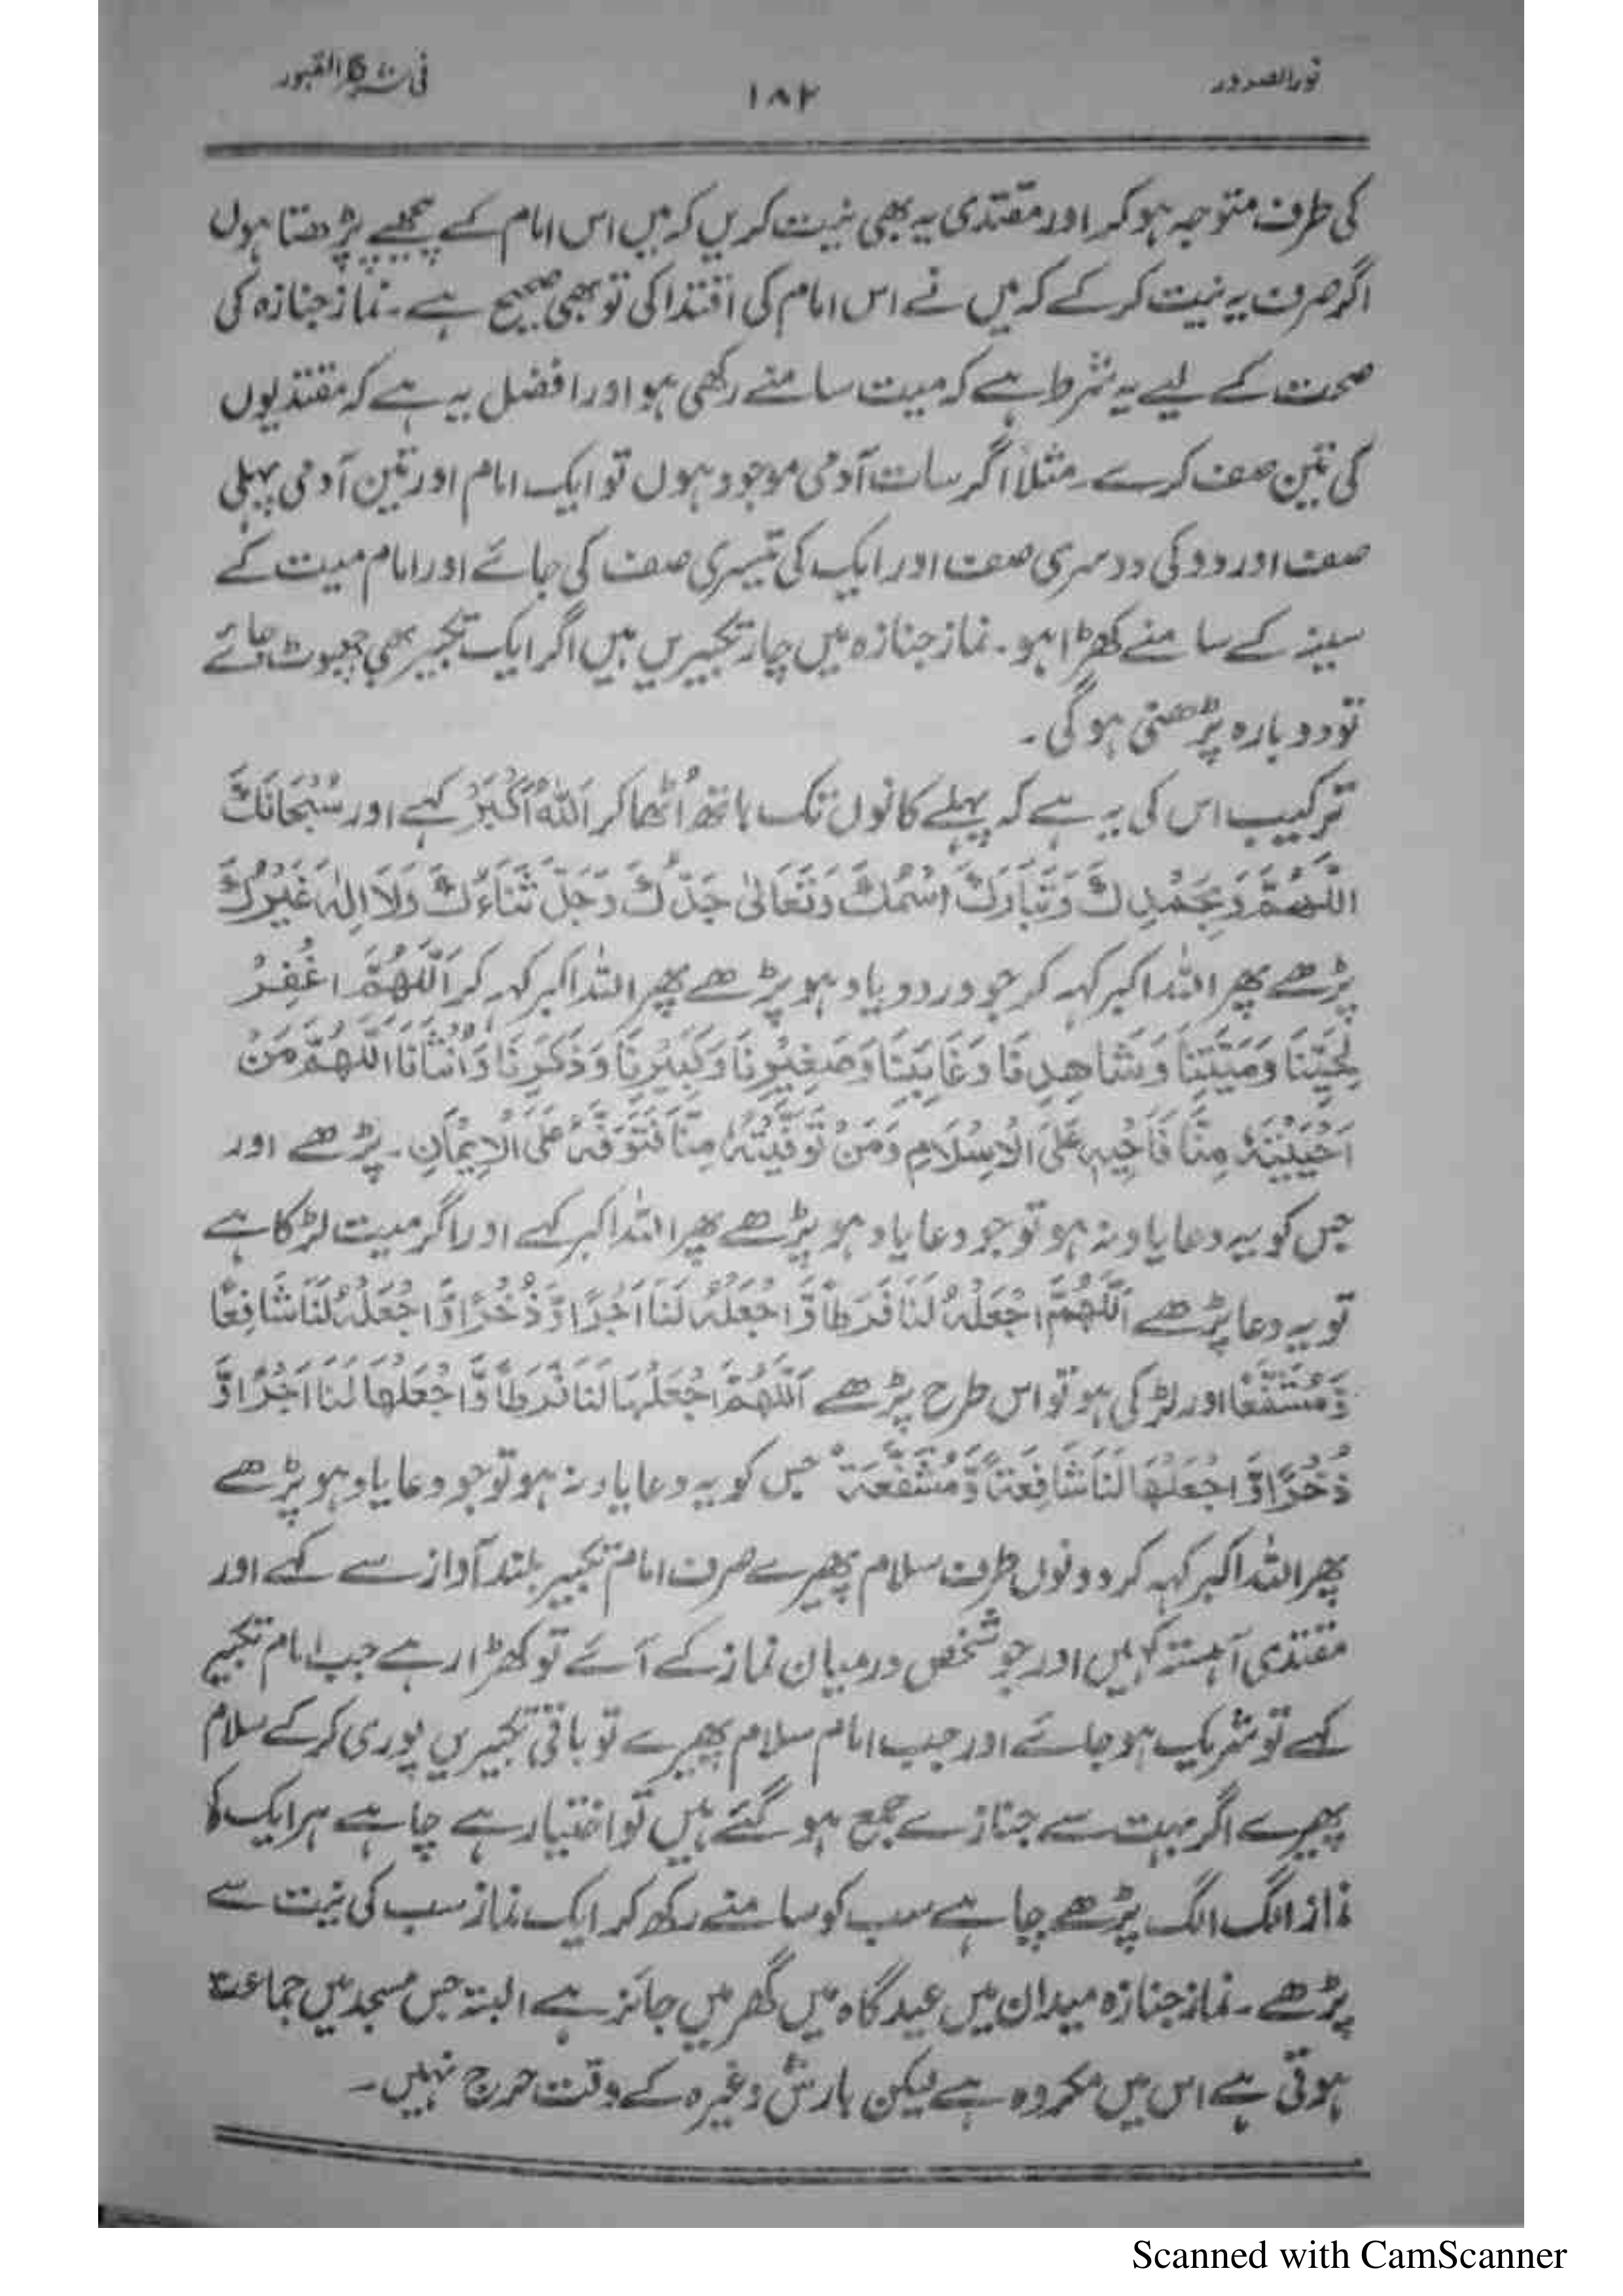 نور الصدور
۱۸۲
فی شرح القبور
کی طرف متوجہ ہو کر اور مقتدی یہ بھی نیت کریں کہ میں اس امام کے پیچھے پڑھتا ہوں
اگر صرف یہ نیت کر کے کہ میں نے اس امام کی اقتدا کی تو بھی صحیح ہے۔ نماز جنازہ کی
صحت کے لیے یہ شرط ہے کہ میت سامنے رکھی ہو اور افضل یہ ہے کہ مقتدیوں
کی تین صف کرے۔ مثلاً اگر سات آدمی موجود ہوں تو ایک امام اور تین آدمی پہلی
صف اور دو کی دوسری صف اور ایک کی تیسری صف کی جائے اور امام میت کے
سینہ کے سامنے کھڑا ہو۔ نماز جنازہ میں چار تکبیریں ہیں اگر ایک تکبیر بھی چھوٹ جائے
تو دوبارہ پڑھنی ہوگی۔
ترکیب اس کی یہ ہے کہ پہلے کانوں تک ہاتھ اُٹھا کر اَللّٰہُ اَکْبَرُ کہے اور سُبْحَانَكَ
اللّٰهُمَّ وَبِحَمْدِكَ وَتَبَارَكَ اسْمُكَ وَتَعَالٰی جَدُّكَ وَجَلَّ ثَنَاءُكَ وَلَا اِلٰهَ غَيْرُكَ
پڑھے پھر اللہ اکبر کہہ کر جو درود یاد ہو پڑھے پھر اللہ اکبر کہہ کر اَللّٰهُمَّ اغْفِرْ
لِحَيِّنَا وَمَيِّتِنَا وَشَاهِدِنَا وَغَائِبِنَا وَصَغِيْرِنَا وَكَبِيْرِنَا وَذَكَرِنَا وَاُنْثَانَا اَللّٰهُمَّ مَنْ
اَحْيَيْتَهٗ مِنَّا فَاَحْيِهٖ عَلَى الْاِسْلَامِ وَمَنْ تَوَفَّيْتَهٗ مِنَّا فَتَوَفَّهٗ عَلَى الْاِيْمَانِ۔ پڑھے اور
جس کو یہ دعا یاد نہ ہو تو جو دعا یاد ہو پڑھے پھر اللہ اکبر کہے اور اگر میت لڑکا ہے
تو یہ دعا پڑھے اَللّٰهُمَّ اجْعَلْهُ لَنَا فَرَطًا وَّاجْعَلْهُ لَنَا اَجْرًا وَّذُخْرًا وَّاجْعَلْهُ لَنَا شَافِعًا
وَّمُشَفَّعًا اور لڑکی ہو تو اس طرح پڑھے اَللّٰهُمَّ اجْعَلْهَا لَنَا فَرَطًا وَّاجْعَلْهَا لَنَا اَجْرًا وَّ
ذُخْرًا وَّاجْعَلْهَا لَنَا شَافِعَةً وَّمُشَفَّعَةً جس کو یہ دعا یاد نہ ہو تو جو دعا یاد ہو پڑھے
پھر اللہ اکبر کہہ کر دونوں طرف سلام پھیرے صرف امام تکبیر بلند آواز سے کہے اور
مقتدی آہستہ کہیں اور جو شخص درمیان نماز کے آئے تو کھڑا رہے جب امام تکبیر
کہے تو شریک ہو جائے اور جب امام سلام پھیرے تو باقی تکبیریں پوری کر کے سلام
پھیرے اگر بہت سے جنازے جمع ہو گئے ہیں تو اختیار ہے چاہے ہر ایک کا
نماز الگ الگ پڑھے چاہے سب کو سامنے رکھ کر ایک نماز سب کی نیت سے
پڑھے۔ نماز جنازہ میدان میں عید گاہ میں گھر میں جائز ہے البتہ جس مسجد میں جماعت
ہوتی ہے اس میں مکروہ ہے لیکن بارش وغیرہ کے وقت حرج نہیں۔
Scanned with CamScanner